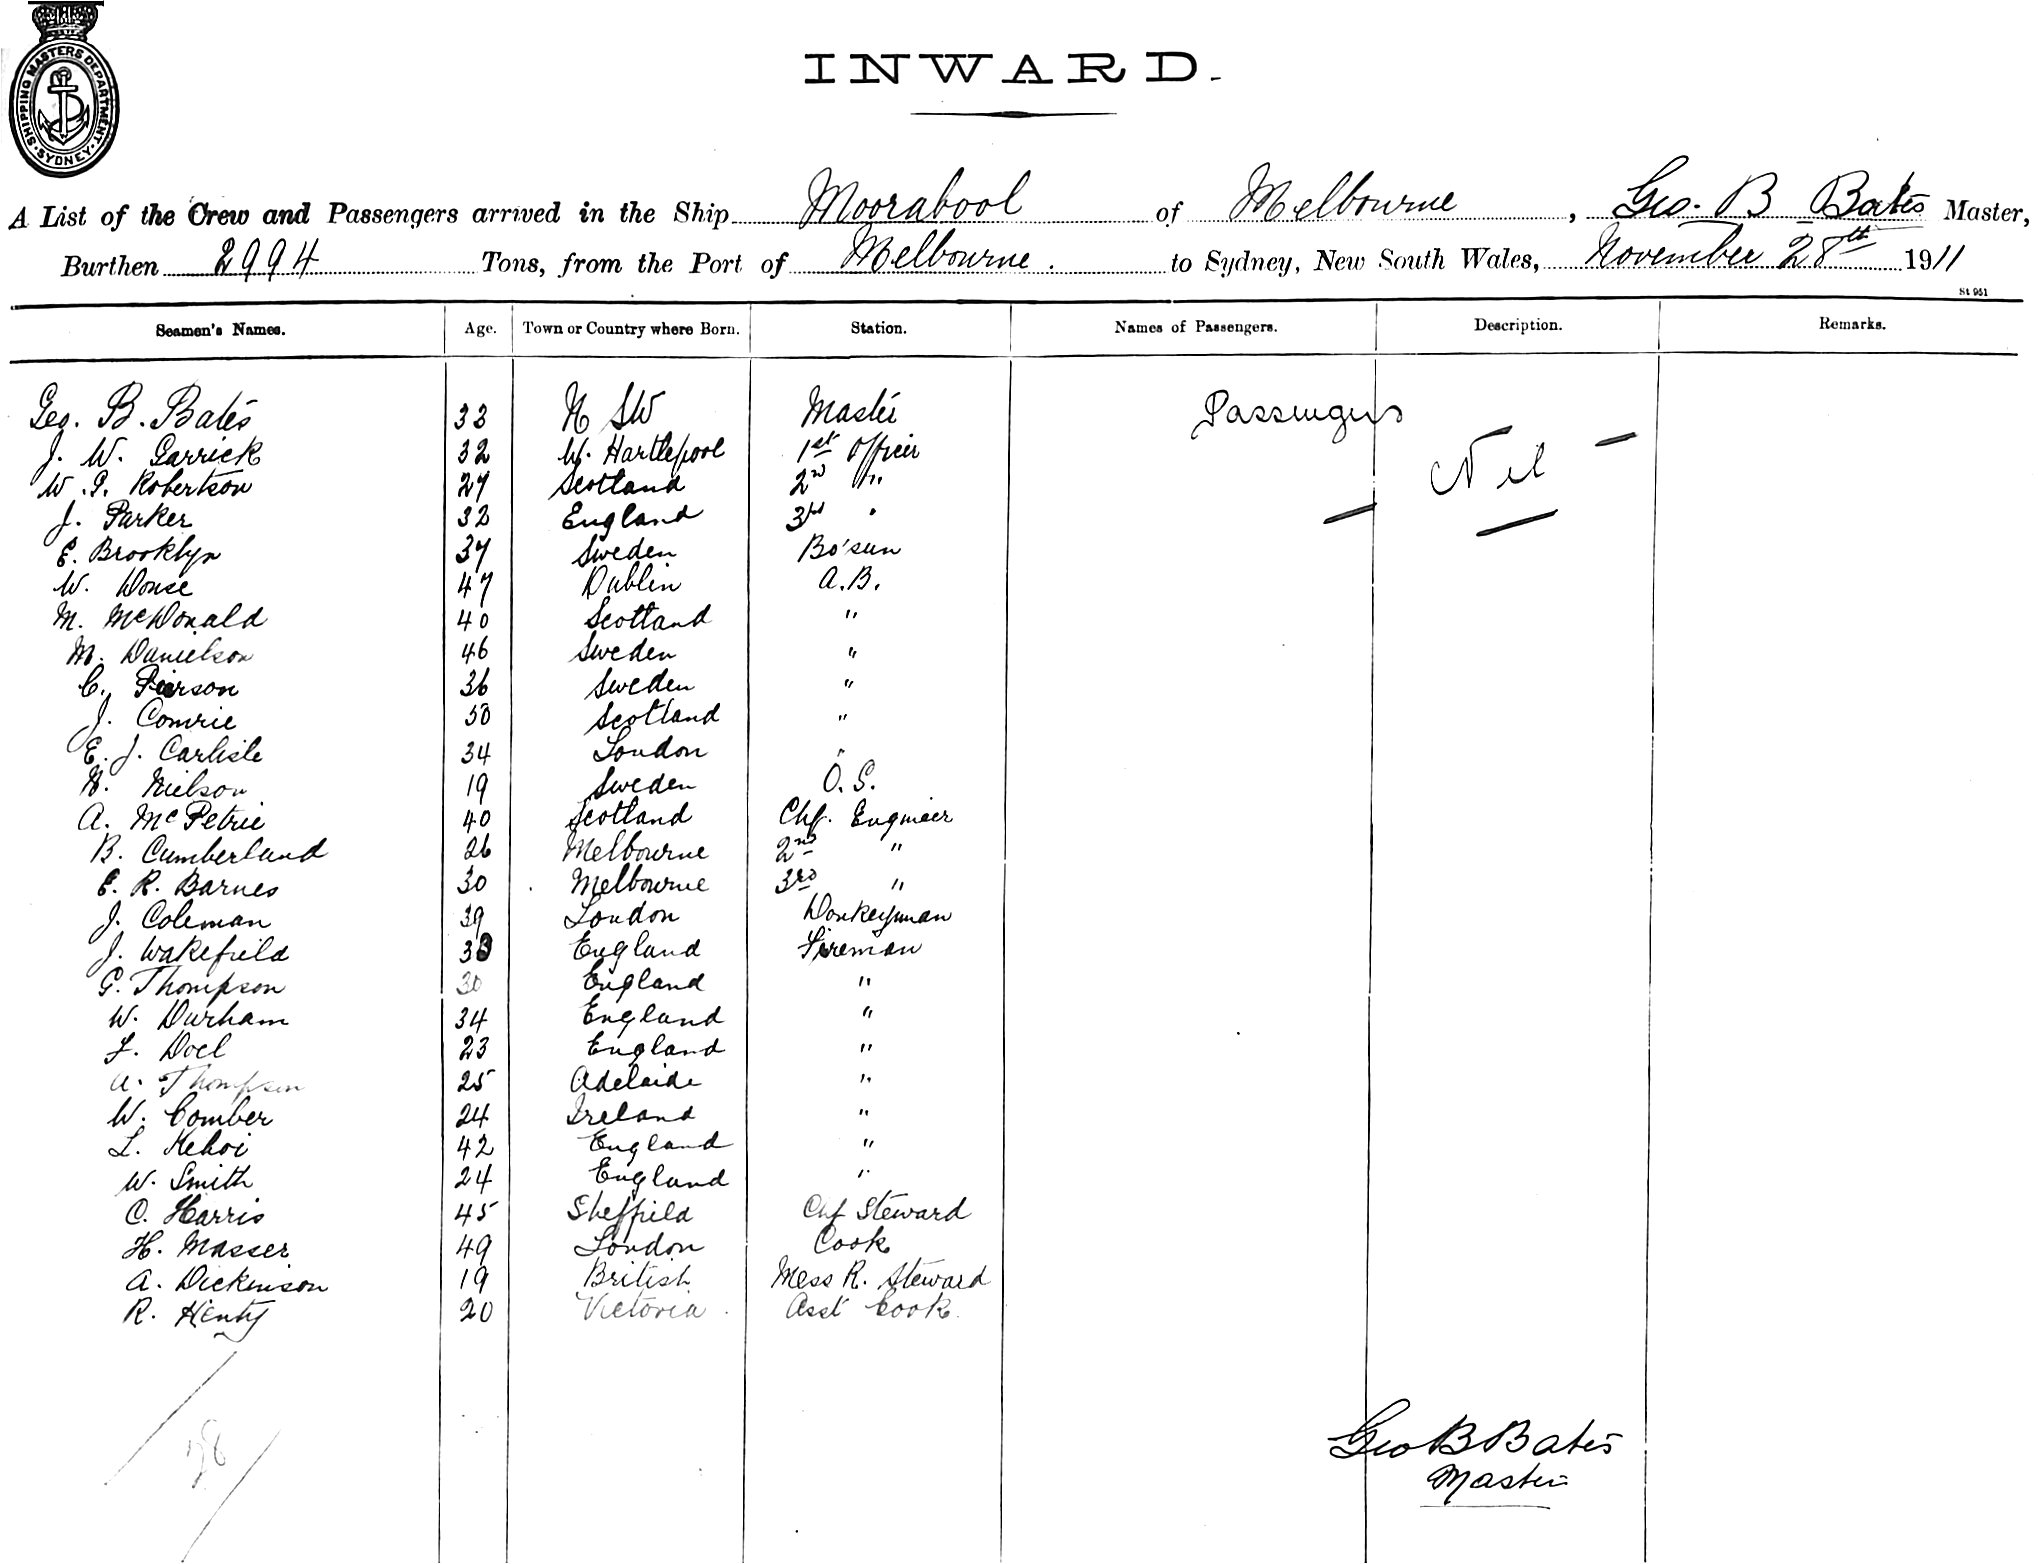 SHIPPING MASTERS DEPARTMENT. SYDNEY.
INWARD.
A List of the Crew and Passengers arrived in the Ship Moorabool of Melbourne, Geo. B Bates Master,
Burthen 2994 Tons, from the Port of Melbourne. to Sydney, New South Wales, November 28th 1911
St 951
Seamen's Names. Age. Town or Country where Born. Station. Names of Passengers. Description. Remarks.
Geo. B. Bates 33 N SW Master Passengers
J. W. Garrick 32 W. Hartlepool 1st Officer Nil
W. P. Robertson 27 Scotland 2nd "
J. Parker 32 England 3rd "
E. Brooklyn 37 Sweden Bo'sun
W. Douse 47 Dublin A.B.
M. McDonald 40 Scotland "
M. Danielson 46 Sweden "
C. Pierson 36 Sweden "
J. Comrie 50 Scotland "
E. J. Carlisle 34 London "
N. Nielson 19 Sweden O.S.
A. McPetrie 40 Scotland Chf. Engineer
B. Cumberland 26 Melbourne 2nd "
E. R. Barnes 30 Melbourne 3rd "
J. Coleman 39 London Donkeyman
J. Wakefield 33 England Fireman
G. Thompson 30 England "
W. Durham 34 England "
F. Doel 23 England "
A. Thompson 25 Adelaide "
W. Comber 24 Ireland "
L. Kehoi 42 England "
W. Smith 24 England "
C. Harris 45 Sheffield Chf Steward
H. Masser 49 London Cook
A. Dickinson 19 British Mess R. Steward
R. Henty 20 Victoria Asst Cook.
28
Geo B Bates
Master